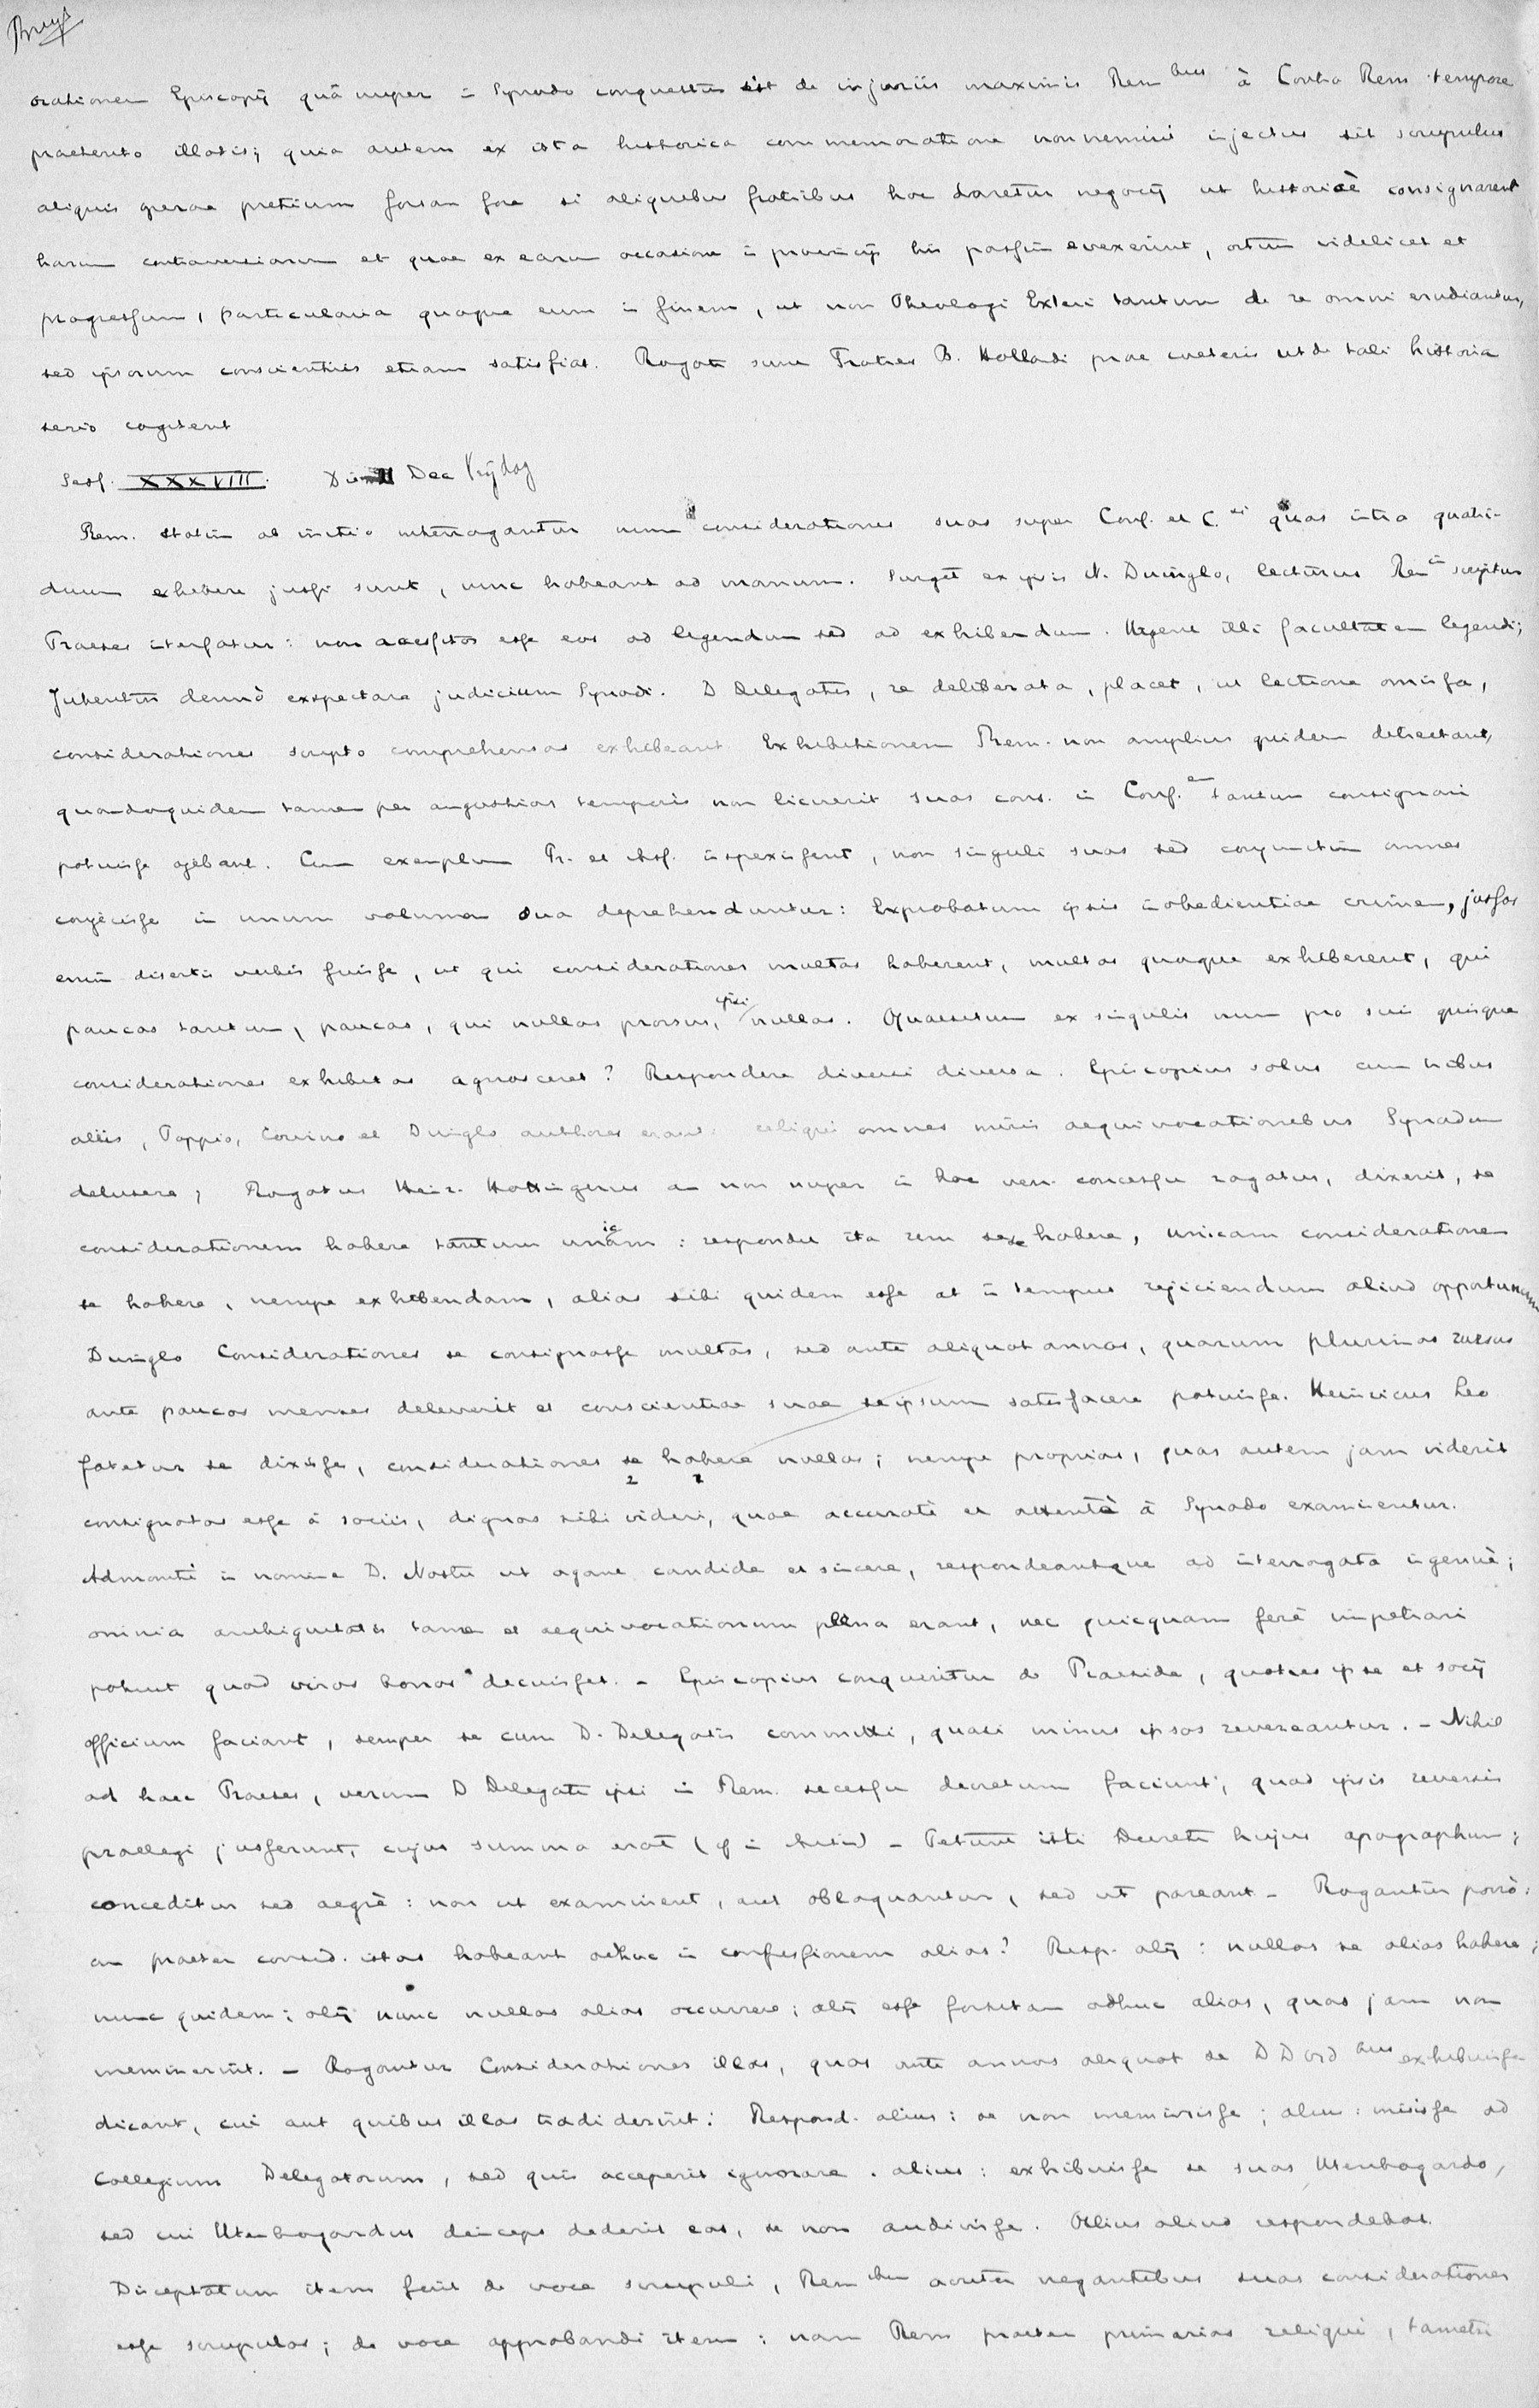 orationem Episcopij quâ nuper in Synodo conquestus est de injuriis maximis Rem bus à Contra Rem tempore
praeterito illatis; quia autem ex ista historica commemoratione nonnemini injectus sit scrupulus
aliquis operae pretium forsan fore si aliquibus fratribus hoc daretur negocij ut historicè consignarent
harum controversiarum et quae ex earum occasione in provincijs his passim evexerint, ortum videlicet et
progressum, particularia quoque eum in finem, ut non Theologi Exteri tantum de re omni erudiantur,
sed ipsorum conscientiis etiam satisfiat. Rogati sunt Fratres B. Hollandi prae caeteris ut de tali historia
serio cogitent
Sess. XXXVIII. Dec Vrijdag
Rem. statim ab initio interrogantur num considerationes suas super Conf. et C. quas intra quatri-
duum exhibere jussi sunt, nunc habeant ad manum. Surgit ex ipsis N. Duinglo, lecturus Rem scriptum
Praeses interfatur: non accersitos esse eos ad legendum sed ad exhibendum. Urgent illi facultatem legendi;
Jubentur denuò exspectare judicium Synodi. D Delegatis, re deliberata, placet, ut lectione omissa,
considerationes scripto comprehensas exhibeant Exhibitionem Rem. non amplius quidem detrectant,
quandoquidem tamen per angustias temporis non licuerit suas cons. in Conf. tantum consignari
potuisse ajebant. Cum exemplum Pr. et Ass. inspexissent, non singuli suas sed conjunctim omnes
conjecisse in unum volumen sua deprehenduntur: Exprobatum ipsis inobedientiae crimen, jussos
enim disertis verbis fuisse, ut qui considerationes multas haberent, multas quoque exhiberent, qui
paucas tantum, paucas, qui nullas prorsus, ipsi nullas. Quaesitum ex singulis num pro suis quisque
considerationes exhibitas agnosceret? Respondere diversi diversa. Episcopius solus cum tribus
aliis, Poppio, Corvino et Duinglo authores erant: reliqui omnes miris aequivocationibus Synodum
delusere; Rogatus Heinr. Hollingerus an non nuper in hoc ven. concessu rogatus, dixerit, se
considerationem habere tantum unicam: respondit ita rem sese habere, unicam considerationem
se habere, nempe exhibendam, alias sibi quidem esse at in tempus rejiciendum aliud opportunum
Duinglo Considerationes se consignasse multas, sed ante aliquot annos, quarum plurimas rursus
ante paucos menses deleverit et conscientiae suae seipsum satisfacere potuisse. Heinricus Leo
fatetur se dixisse, considerationes se habere nullas; nempe proprias, quas autem jam viderit
2 1
consignatas esse à sociis, dignas sibi videri, quae accuratè et attentè à Synodo examinentur.
Admoniti in nomine D. Nostri ut agant candide et sincere, respondeantque ad interrogata ingenuè;
omnia ambiguitatis tamen et aequivocationum plena erant, nec quicquam ferè impetrari
potuit quod viros bonos decuisset. - Episcopius conqueritur de Praeside, quoties ipse et socij
officium faciant, semper se cum D. Delegatis committi, quasi minus ipsos revereantur. - Nihil
ad haec Praeses, verum D Delegati ipsi in Rem. secessu decretum faciunt, quod ipsis reversis
praelegi jusserunt, cujus summa erat ( - Petunt isti Decreti hujus apographum;
conceditur sed aegrè: non ut examinent, aut obloquantur, sed ut pareant - Rogantur porrò:
an praeter consid. istas habeant adhuc in confessionem alias? Resp. alij: nullas se alias habere;
nunc quidem; alij nunc nullas alias occurrere; alij esse forsitan adhuc alias, quas jam non
meminerint. - Rogantur Considerationes illas, quas ante annos aliquot se DD ord bus exhibuisse
dicant, cui aut quibus illas tradiderint: Respond. alius: se non meminisse; alius: misisse ad
Collegium Delegatorum, sed quis acceperit ignorare. alius: exhibuisse se suas Utenbogardo,
sed cui Utenbogardus deinceps dederit eas, se non audivisse. Alius aliud respondebat.
Disceptatum item fuit de voce scrupuli, Rem acriter negantibus suas considerationes
esse scrupulos; de voce approbandi item: nam Rem praeter primarios reliqui, tametsi